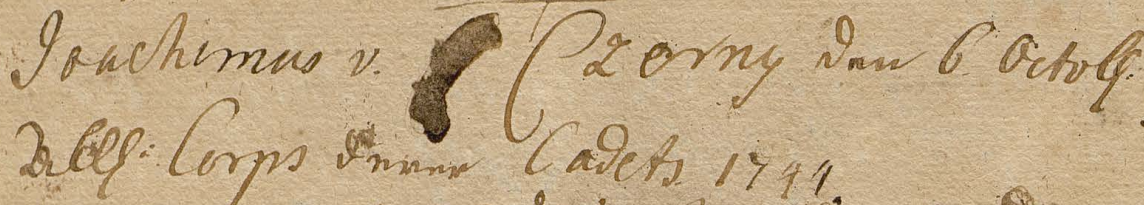 Joachimus v. Czerny den 6 Octobr.
Corps derer Cadets 1744